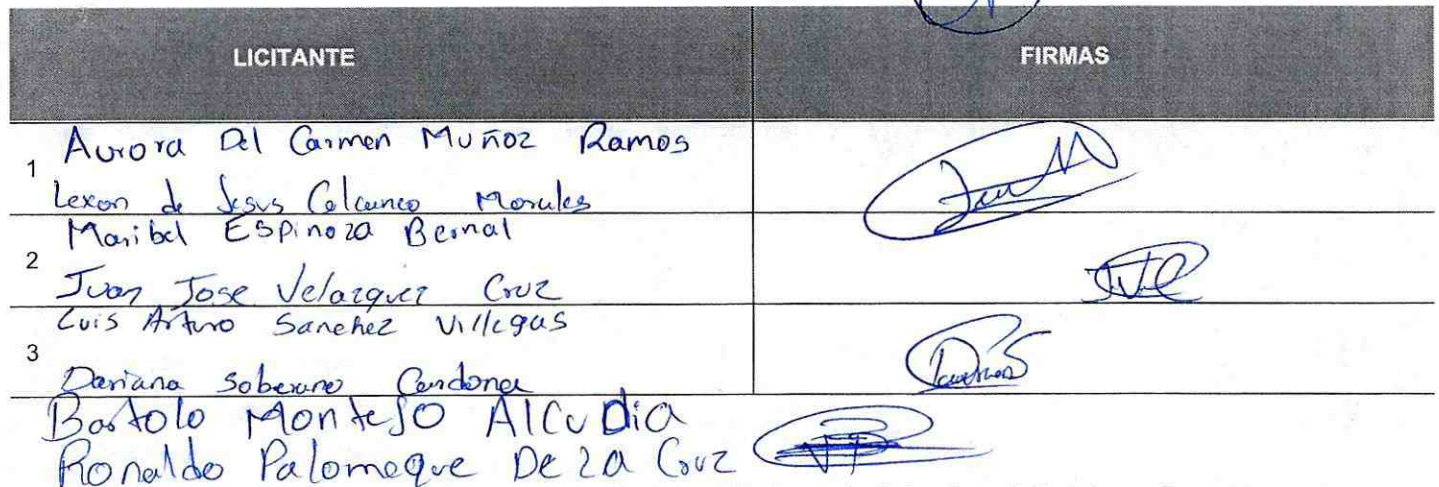 LICITANTE FIRMAS
1 Aurora Del Carmen Muñoz Ramos
Lexon de Jesus Colcuneo Morales
Maribel Espinoza Bernal
2
Juan Jose Velazquez Cruz
Luis Arturo Sanchez Villegas
3
Dariana Soberano Cardona
Bartolo Montejo Alcudia
Ronaldo Palomeque De La Cruz